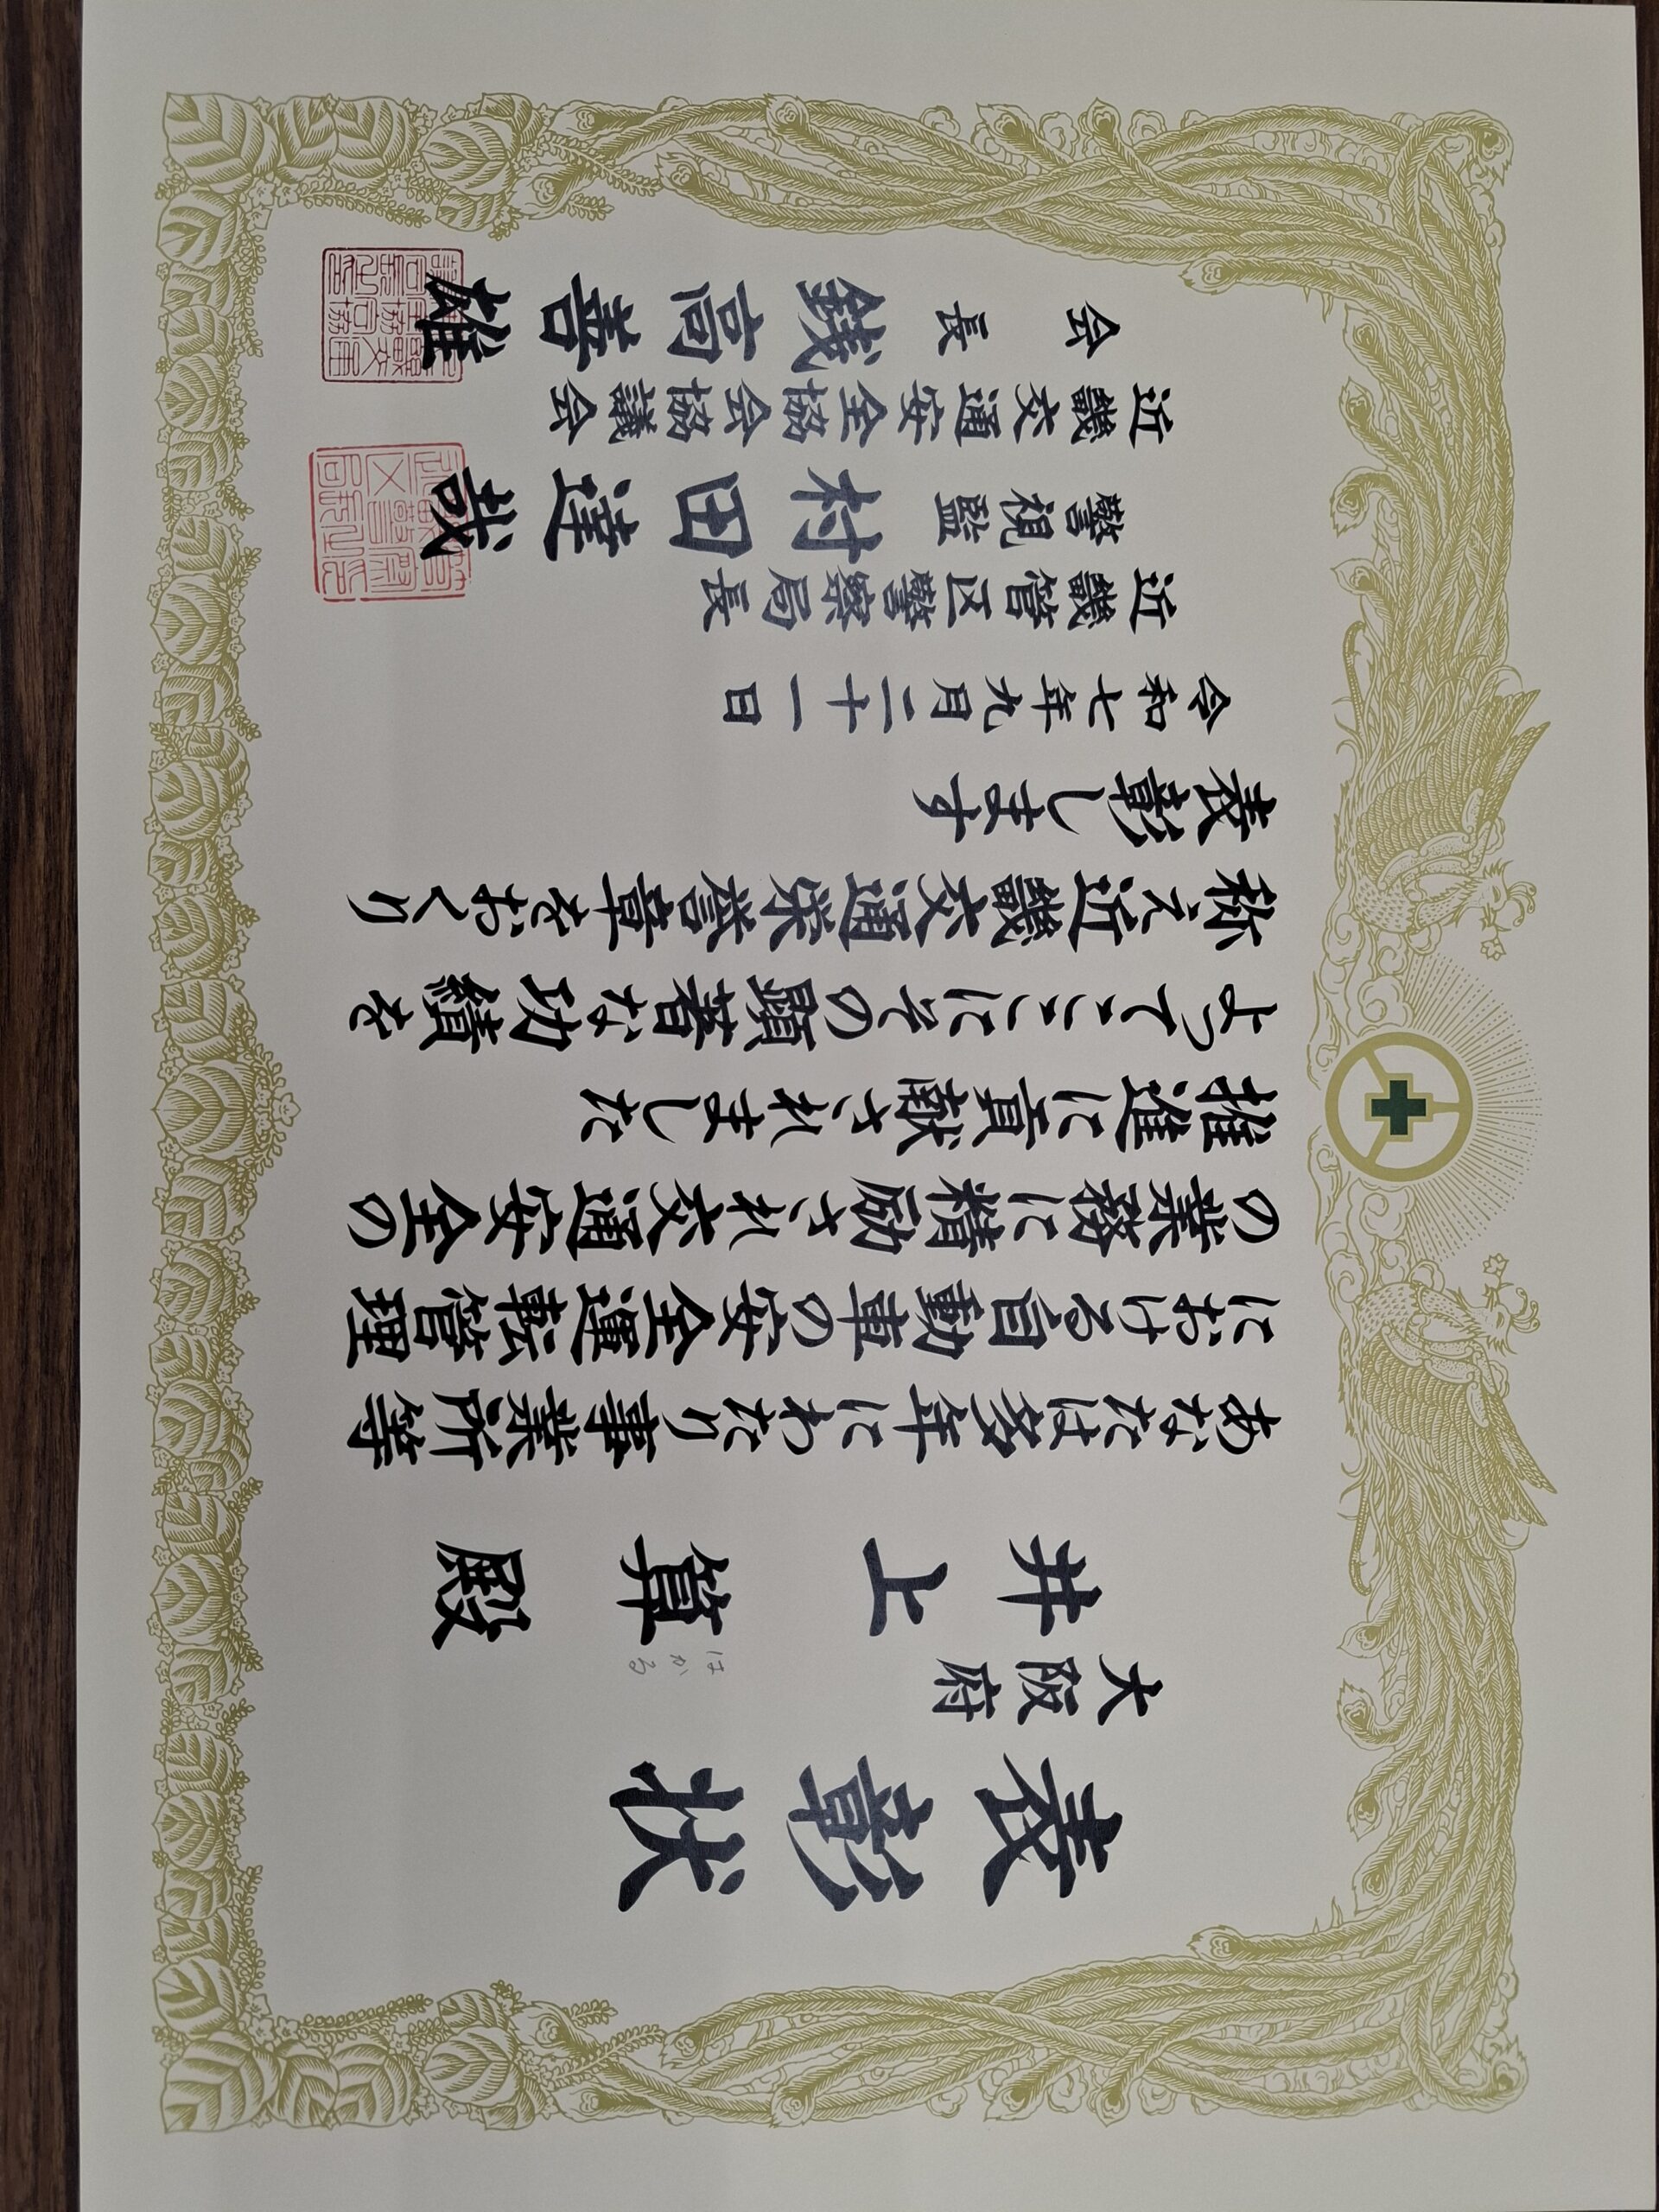 表彰状
大阪府
井上算殿
はかる
あなたは多年にわたり事業所等
における自動車の安全運転管理
の業務に精励され交通安全の
推進に貢献されました
よってここにその顕著な功績を
称え近畿交通栄誉章をおくり
表彰します
令和七年九月二十一日
近畿管区警察局長
警視監 村田達哉
近畿交通安全協会協議会
会長 銭高善雄